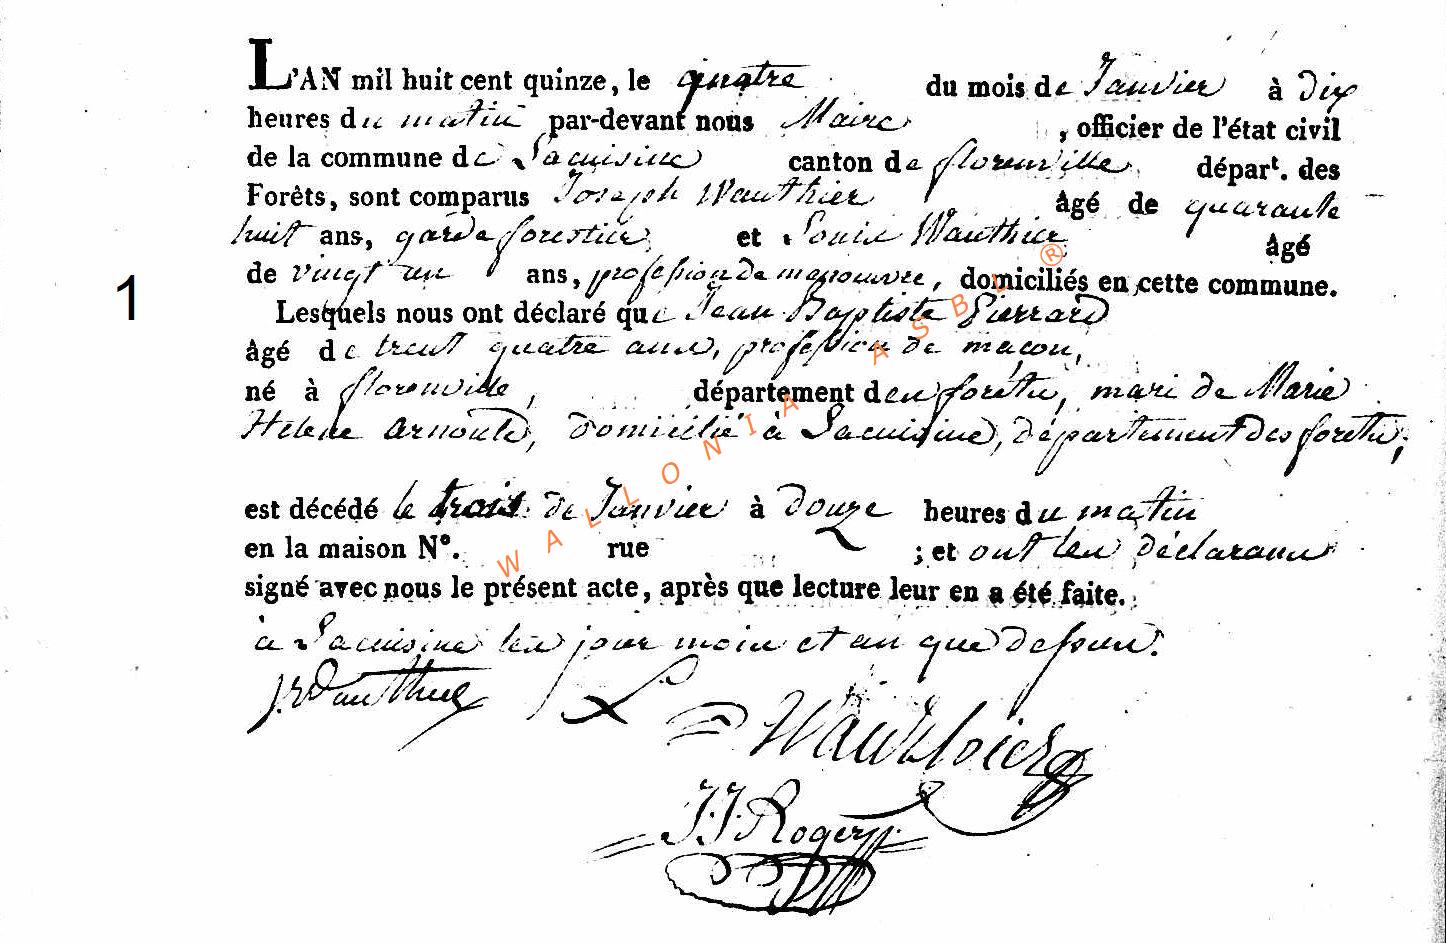 L'AN mil huit cent quinze, le quatre du mois de Janvier à dix
heures du matin par-devant nous Maire , officier de l'état civil
de la commune de Lacuisine canton de florenville départ. des
Forêts, sont comparus Joseph Wauthier âgé de quarante
huit ans, garde forestier et Louis Wauthier âgé
de vingt un ans, profession de manouvre, domiciliés en cette commune.
1
Lesquels nous ont déclaré que Jean Baptiste Pierrard
âgé de trent quatre ans, profession de maçon,
né à florenville, département des forêts, mari de Marie
Helene Arnould, domicilié à Lacuisine, département des forets,
est décédé le trois de Janvier à douze heures du matin
en la maison N°. rue ; et ont les déclarans
signé avec nous le présent acte, après que lecture leur en a été faite.
à Lacuisine les jour mois et an que dessus.
J. Wauthier L Wauthier
J. J. Roger
WALLONIA ASBL ®